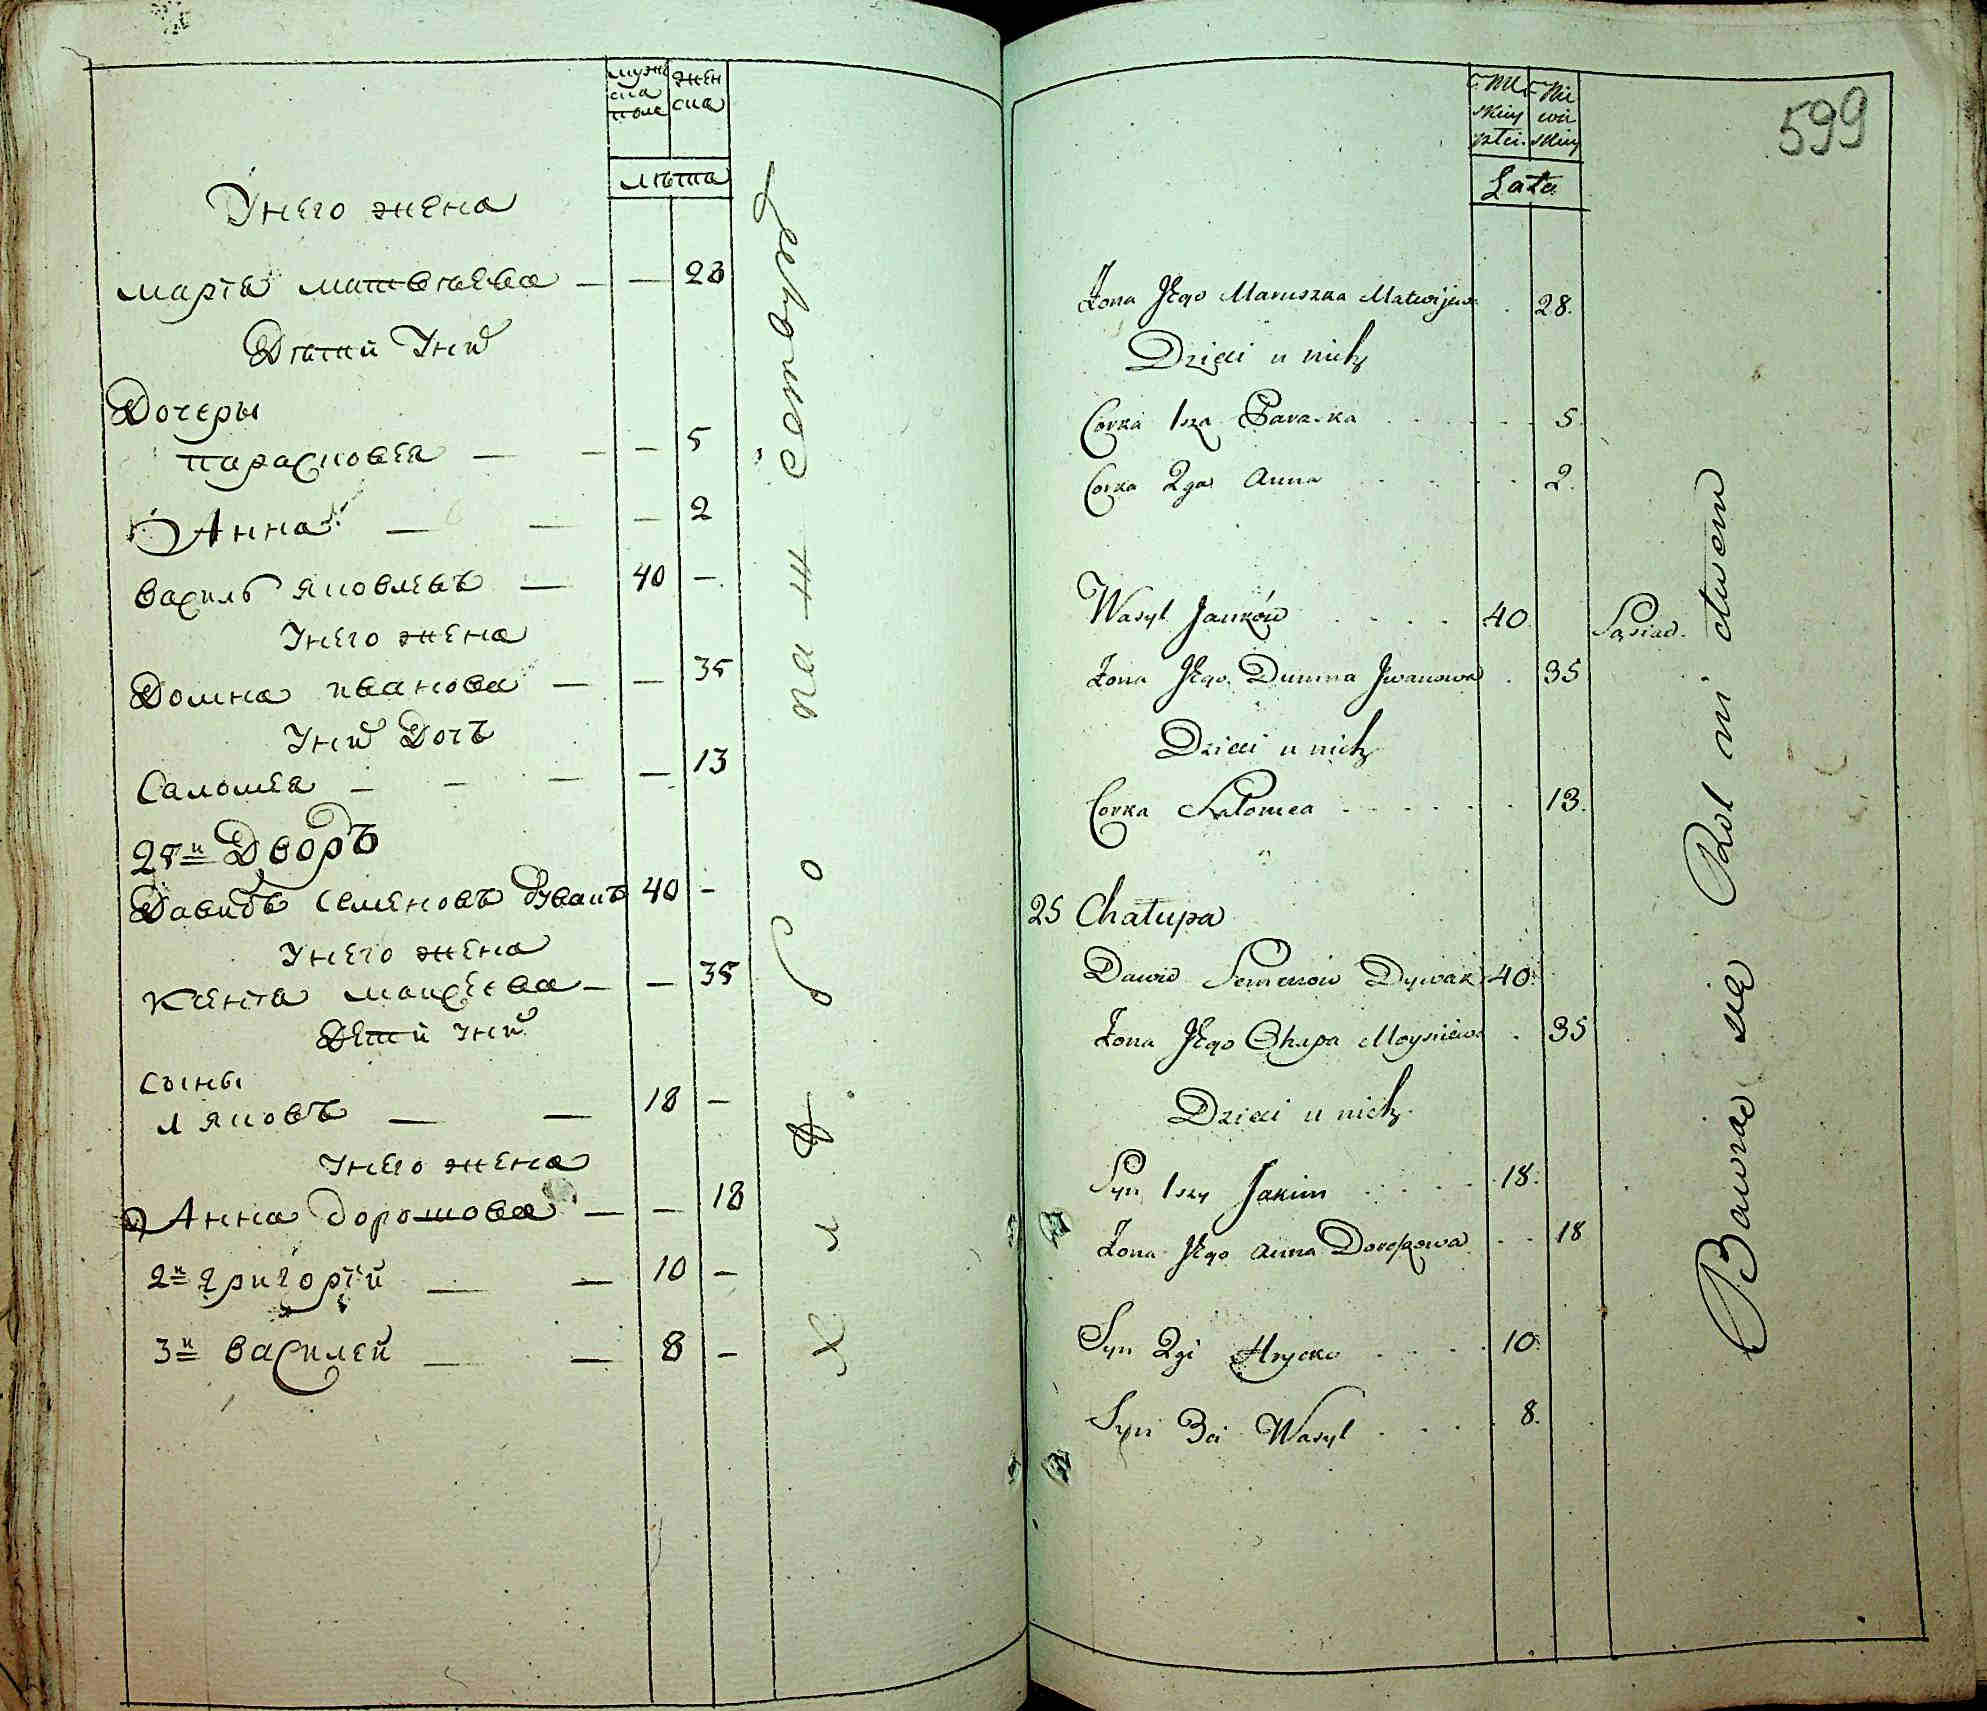 мужеска пола
женска
лѣта
У него жена
Марія Матвѣева — — 28
Дѣтей у них
Дочеры
Парасковея — — — 5
Анна — — — 2
Василь Яковлевъ — 40 —
У него жена
Домна Иванова — — 35
У них Дочь
Саломея — — — — 13
25й Дворъ
Давидъ Семеновъ Дывакъ 40 —
У него жена
Ксенія Моисеева — — 35
Дети у них
Сыны
1 Яковъ — — 18 —
У него жена
Анна Дорошова — — 18
2й Григорій — — 10 —
3й Василей — — 8 —
Хлѣбопашествующей
599
Męskiey płci
Niewieskiey
Lata
Żona Jego Maruszka Matwijewa . 28.
Dzieci u nich
Corka 1sza Paraska . . . . 5.
Corka 2ga Anna . . . . 2.
Wasyl Janków . . . . 40. Sąsiad.
Żona Jego Dumna Jwanowa . 35
Dzieci u nich
Corka Salomea . . . . . 13.
25 Chałupa
Dawid Semenów Dywak 40.
Żona Jego Ohapa Moysiiewa . 35
Dzieci u nich.
Syn 1szy Jakim . . . . . 18.
Żona Jego Anna Doroszowa . . 18
Syn 2gi Hrycko . . . . 10.
Syn 3ci Wasyl . . . . 8.
Bawiac się Rol ni ctwem